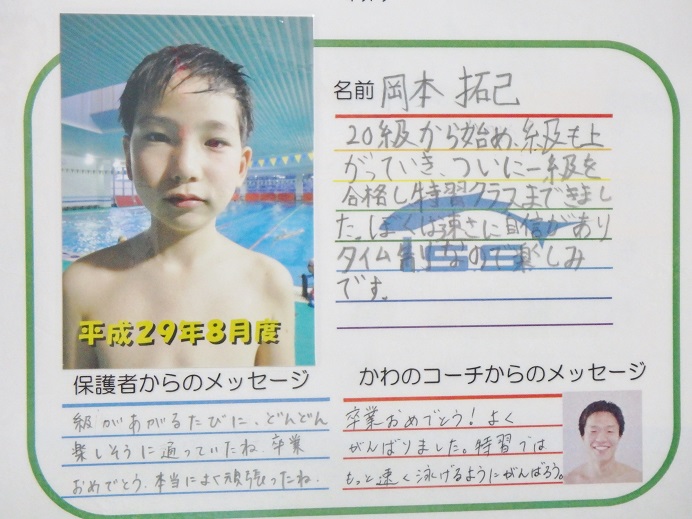 名前 岡本 拓己
20級から始め、級も上
がっていき、ついに一級を
合格し特習クラスまできまし
た。ぼくは速さに自信があり
タイム
なので楽しみ
です。
平成29年8月度
保護者からのメッセージ
級があがるたびに、どんどん
楽しそうに通っていたね。卒業
おめでとう。本当によく頑張ったね。
かわのコーチからのメッセージ
卒業おめでとう!よく
がんばりました。特習では
もっと速く泳げるようにがんばろう。